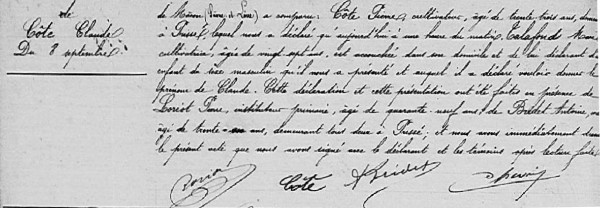 de
Côte Claude
Du 8 septembre
de Mâcon (Saône & Loire) a comparu: Côte Pierre, cultivateur, âgé de trente trois ans,
à Fuissé, lequel nous a déclaré qu'aujourd'hui à une heure du matin,
cultivatrice, âgée de vingt sept ans, est accouchée dans son domicile et de lui déclarant
enfant du sexe masculin qu'il nous a présenté et auquel il a déclaré vouloir donner le
prénom de Claude. Cette déclaration et cette présentation ont été faites en présence de
Loriot Pierre, instituteur primaire, âgé de quarante neuf ans, & de Bridet Antoine,
âgé de trente ans, demeurant tous deux à Fuissé; et nous avons immédiatement
le présent acte que nous avons signé avec le déclarant et les témoins après lecture faite.
Loriot Côte Bridet